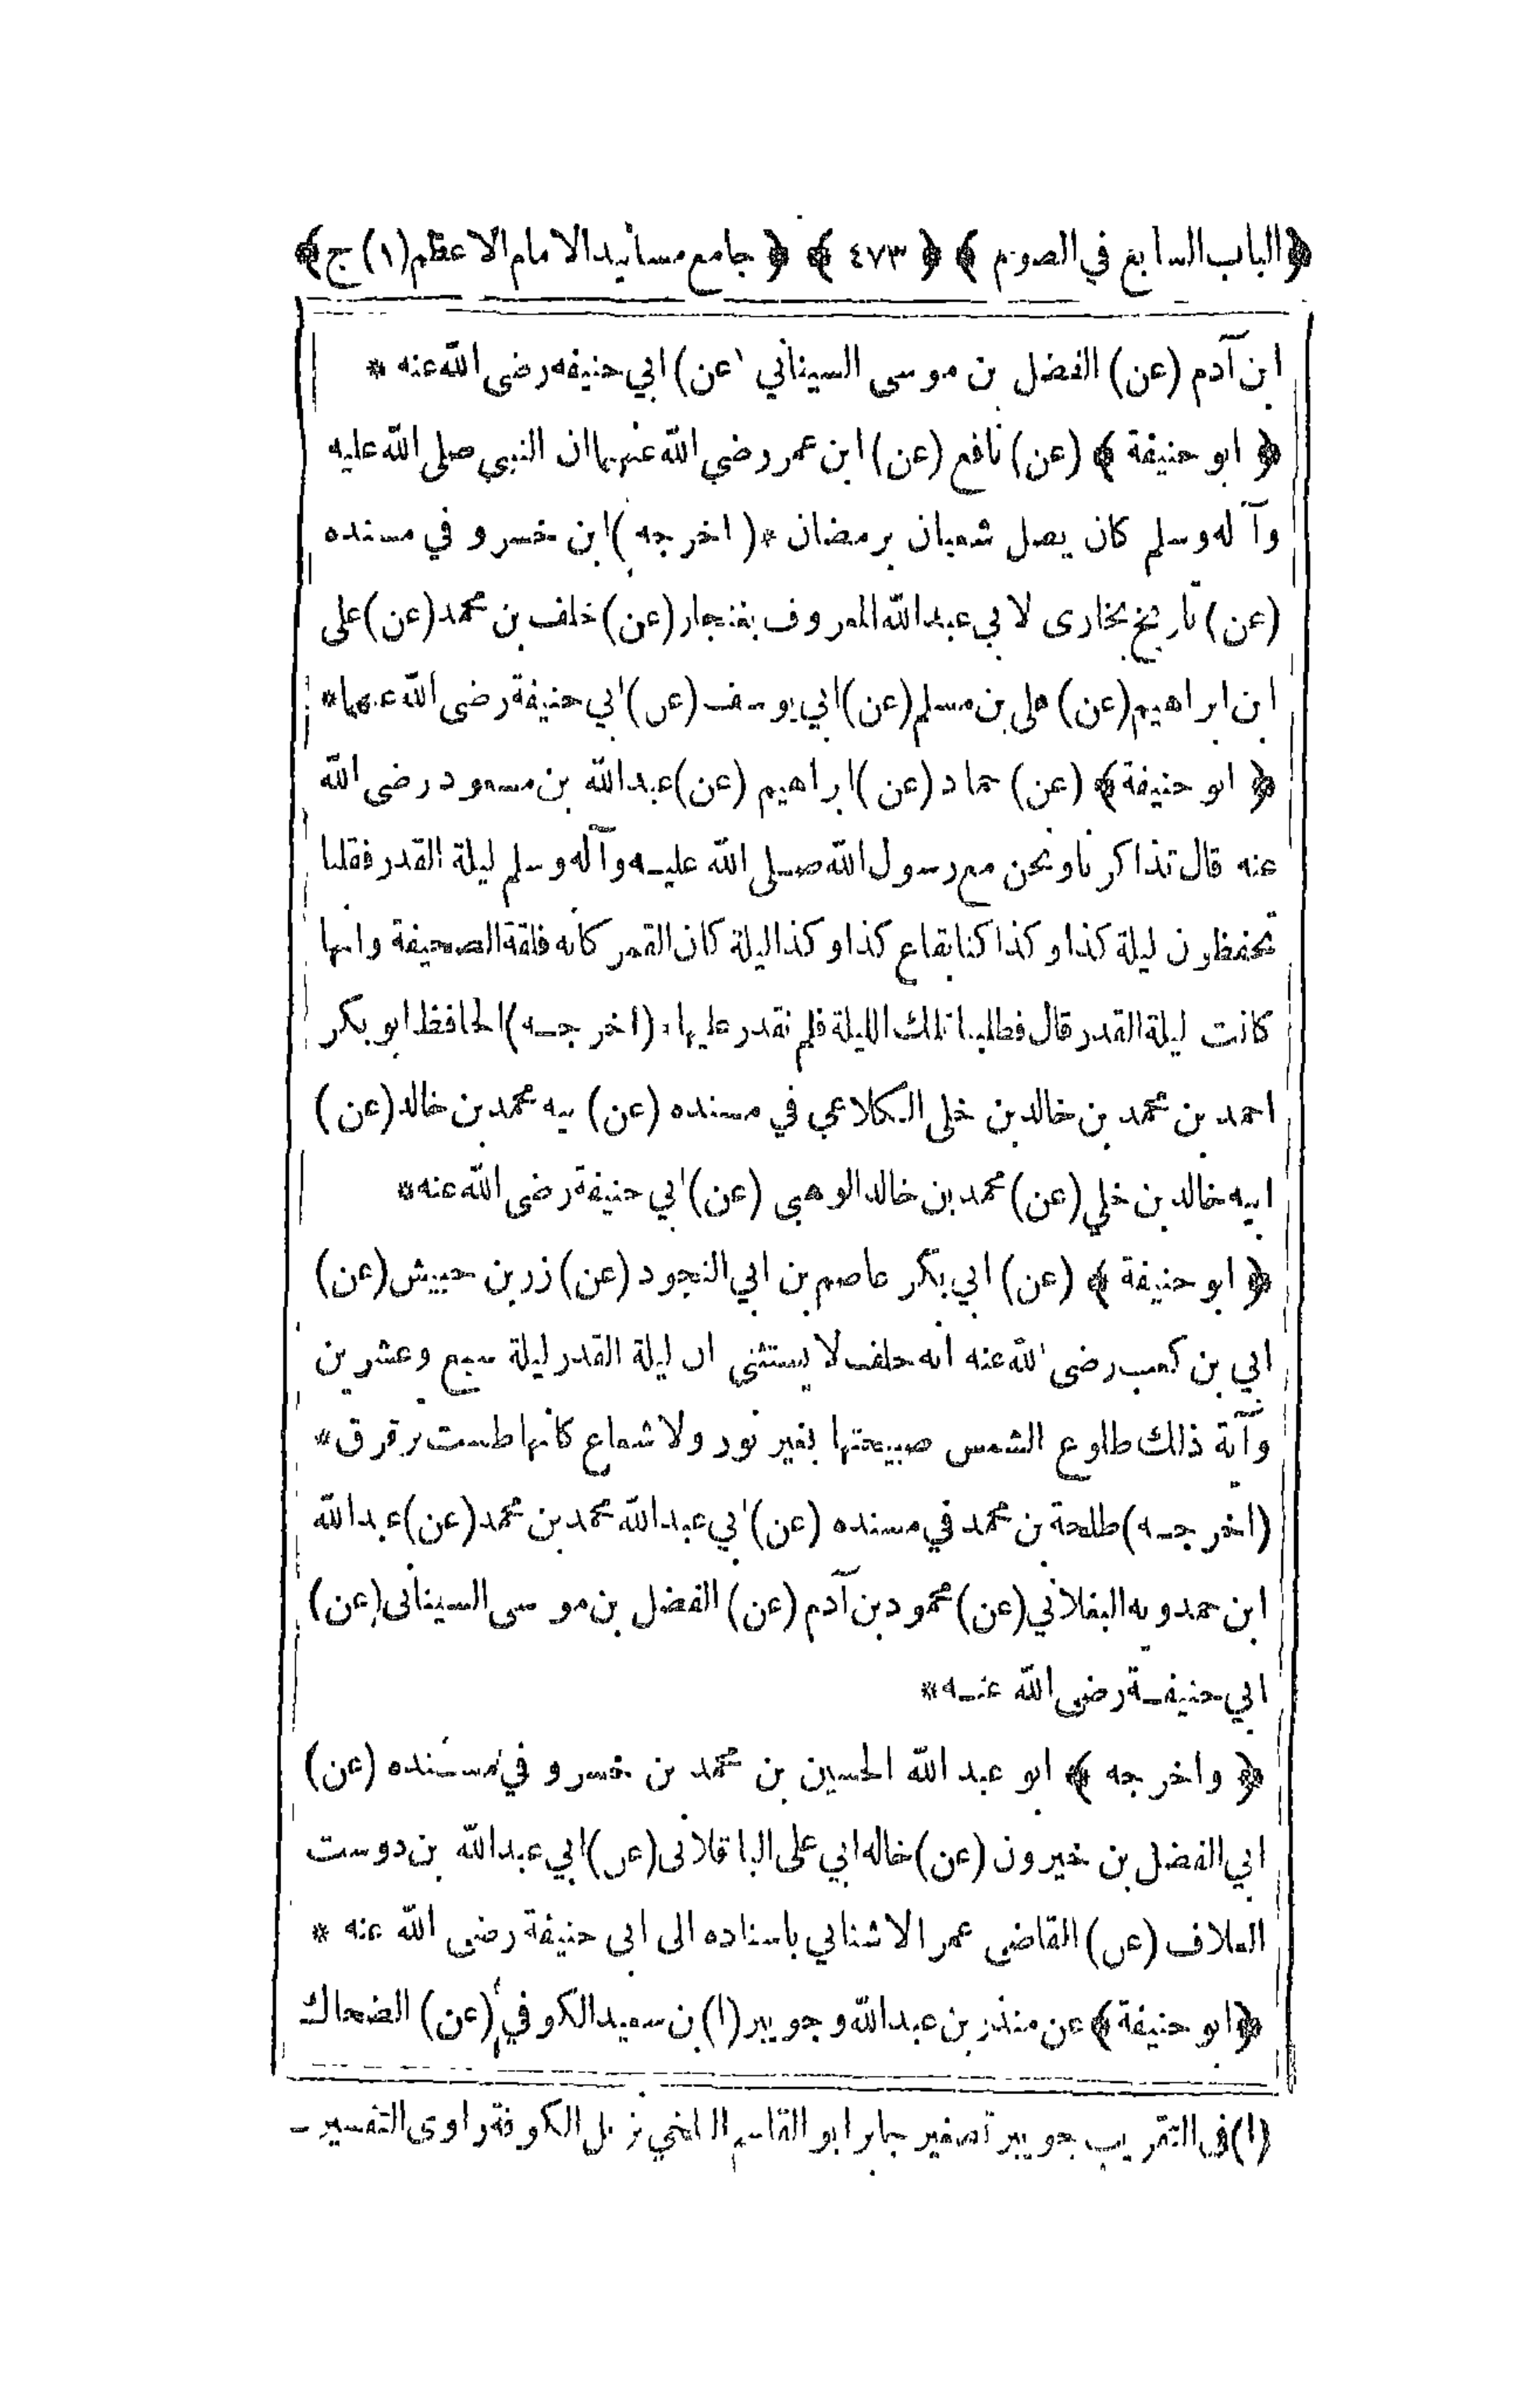 ﴿الباب السابع في الصوم﴾ ﴿٤٧٣﴾ ﴿جامع مسانيد الامام الاعظم (١) ج﴾
ابن آدم (عن) الفضل بن موسى السيناني (عن) ابي حنيفه رضى الله عنه *
﴿ ابو حنيفة ﴾ (عن) نافع (عن) ابن عمر رضي الله عنهما ان النبي صلى الله عليه
وآله وسلم كان يصل شعبان برمضان * (اخرجه) ابن خسرو في مسنده
(عن) تاريخ بخارى لابي عبدالله المعروف بغنجار (عن) خلف بن محمد (عن) على
ابن ابراهيم (عن) على بن مسلم (عن) ابي يوسف (عن) ابي حنيفة رضى الله عنهما *
﴿ ابو حنيفة ﴾ (عن) حماد (عن) ابراهيم (عن) عبدالله بن مسعود رضى الله
عنه قال تذاكرنا ونحن مع رسول الله صلى الله عليه وآله وسلم ليلة القدر فقلنا
تحفظون ليلة كذا وكذا كنا بقاع كذا وكذا ليلة كان القمر كأنه فلقة الصحيفة وانها
كانت ليلة القدر قال فطلبنا تلك الليلة فلم نقدر عليها * (اخرجه) الحافظ ابو بكر
احمد بن محمد بن خالد بن خلى الكلاعي في مسنده (عن) ابيه محمد بن خالد (عن)
ابيه خالد بن خلي (عن) محمد بن خالد الوهبى (عن) ابي حنيفة رضى الله عنه *
﴿ ابو حنيفة ﴾ (عن) ابي بكر عاصم بن ابي النجود (عن) زر بن حبيش (عن)
ابي بن كعب رضى الله عنه انه حلف لا يستثنى ان ليلة القدر ليلة سبع وعشرين
وآية ذلك طلوع الشمس صبيحتها بغير نور ولا شعاع كانها طست ترقرق *
(اخرجه) طلحة بن محمد في مسنده (عن) ابي عبدالله محمد بن محمد (عن) عبدالله
ابن حمدويه البغلاني (عن) محمود بن آدم (عن) الفضل بن موسى السينانى (عن)
ابي حنيفة رضى الله عنه *
﴿ واخرجه ﴾ ابو عبد الله الحسين بن محمد بن خسرو في مسنده (عن)
ابي الفضل بن خيرون (عن) خاله ابي على الباقلانى (عن) ابي عبدالله بن دوست
العلاف (عن) القاضى عمر الاشناني باسناده الى ابى حنيفة رضى الله عنه *
﴿ابو حنيفة﴾ عن منذر بن عبدالله وجويبر (١) بن سعيد الكوفي (عن) الضحاك
(١) فى التقريب جويبر تصغير جابر ابو القاسم البلخي نزيل الكوفة راوى التفسير ــ